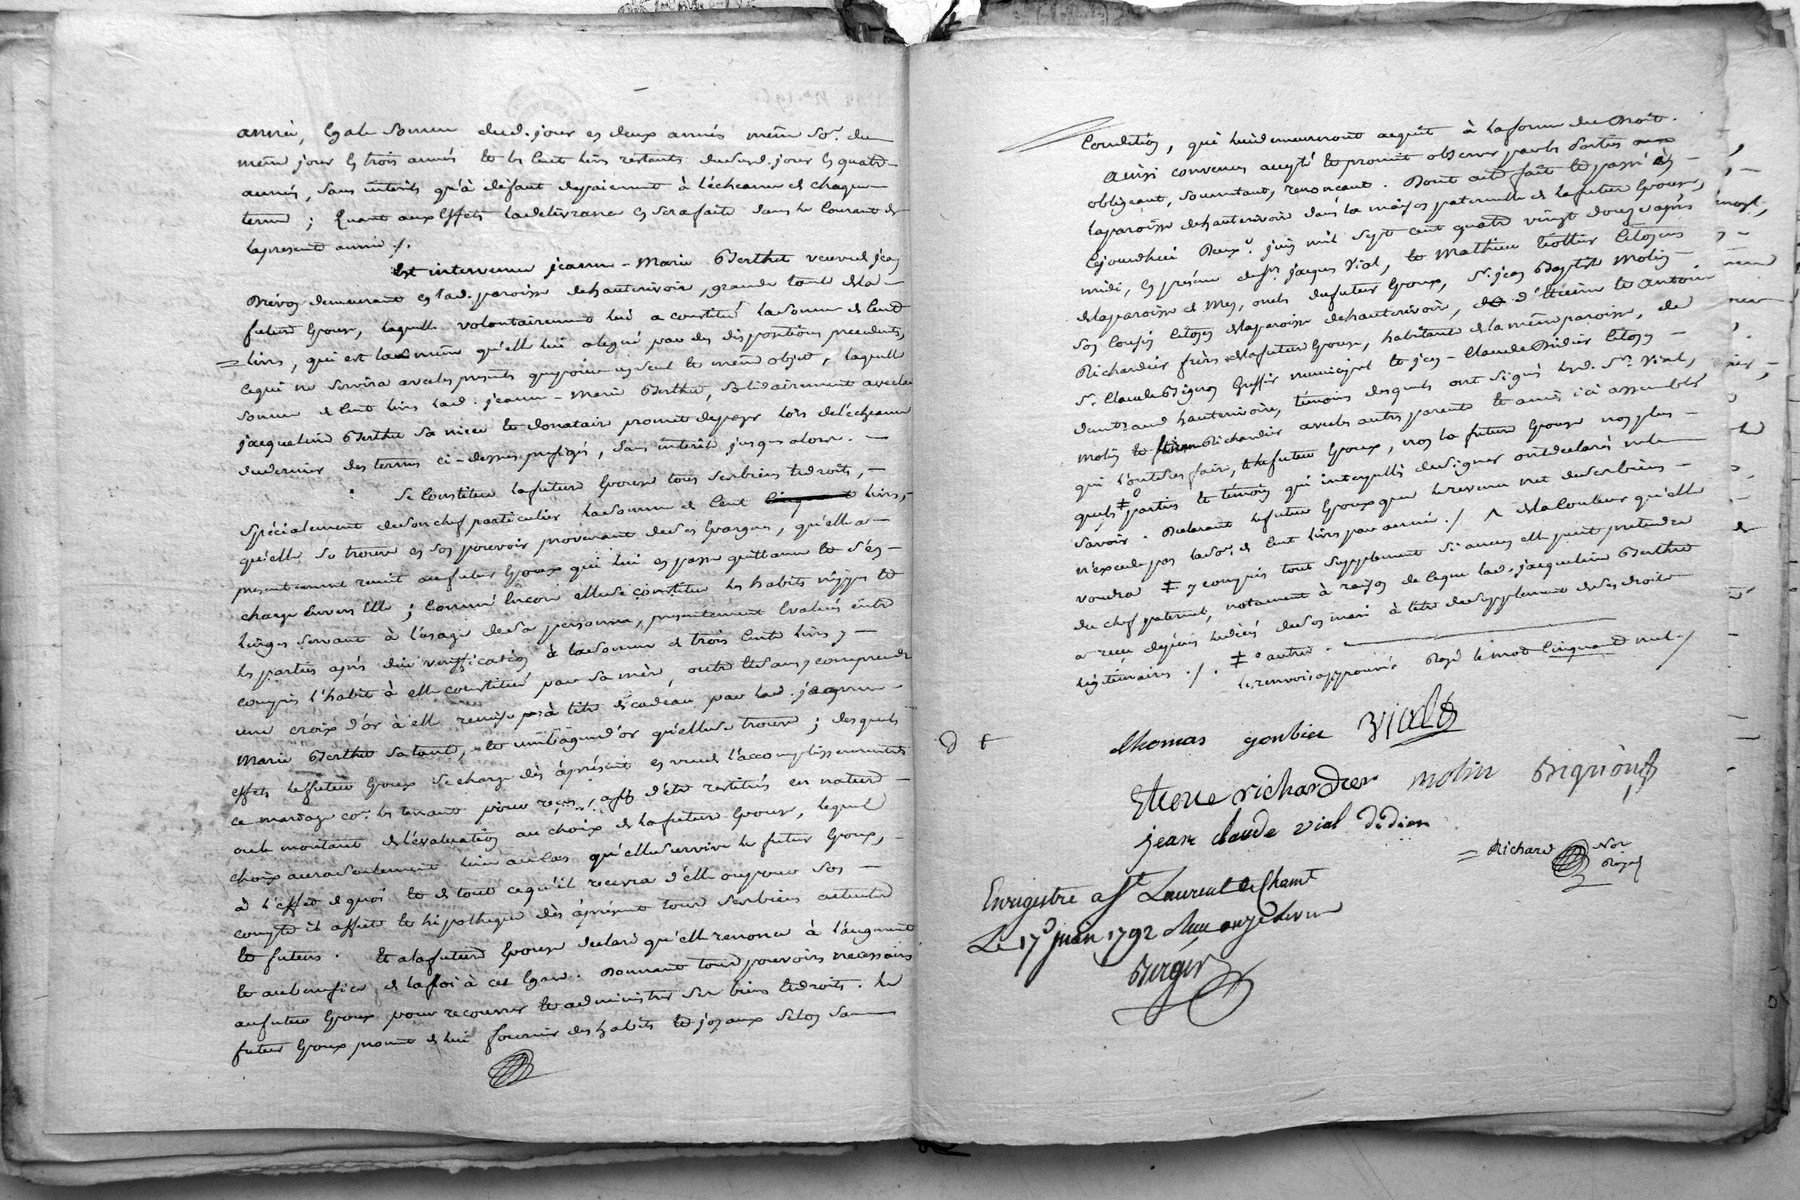 année, Egale Somme dud. jour en deux années même So.e du
même jour En trois années et les Cent livres restants dudit d. jour En quatre
années, Sans intérêts qu'à défaut de paiement à l'écheance de chaque
terme ; Quant aux Effets la delivrance En sera faite dans le Courant de
la presente année ./.
Est intervenue jeanne-Marie Berthet veuve de jean
demeurant En lad. paroisse de hauterivoire, grande tante de la
future Epouse, laquelle volontairement lui a constitué la Somme de Cent
livres, qui est la même qu'elle lui a legué par des dispositions precedentes,
Cequi ne Servira avec les presentes que pour un Seul et même objet, laquelle
Somme de Cent livres lad. jeanne-Marie Berthet, Solidairement avec lad.
jacqueline Berthet Sa niece et donataire promet de payer lors de l'écheance
du dernier des termes ci-dessus prefigés, Sans intérêt jusques alors.
Se Constitue la future Epouse tous Ses biens et droits,
Spécialement de Son chef particulier la Somme de Cent livres,
qu'elle a Se trouve en Son pouvoir provenant de Ses Epargnes, qu'elle a
presentement remis au futur Epoux qui lui en passe quittance et S'en
charge Envers Elle ; Comme Encore elle Se Constitue les habits nippes et
linges Servant à l'usage de Sa personne, presentement Evalués entre
les parties après due verification à la Somme de trois Cents livres, y
compris l'habit à elle constitué par Sa mère, outre et Sans y comprendre
une croix d'or à elle remise à titre de cadeau par lad. jeanne
Marie Berthet Sa tante, et une bague d'or qu'elle Se trouve ; desquels
effets le futur Epoux Se charge dès àprésent en vue de l'accomplissement de
ce mariage les tenant pour reçus, aff d'être restitués en nature
ou le montant de l'évaluation au choix de la future Epouse, lequel
choix aura Seulement lieu au Cas qu'elle Survive le futur Epoux,
à l'effet de quoi et de tout cequ'il recevra d'elle ou pour Son
compte il affecte et hipotheque dès àprésent tous Ses biens actuels
et futurs. Et a la future Epouse declaré qu'elle renonce à l'augment
et au benefice de la loi à cet Egard. Donnant tous pouvoirs necessaires
au futur Epoux pour recouvrer et administrer Ses biens et droits. Le
futur Epoux promet de lui fournir des habits et joyaux Selon Sa
Condition, qui lui demeureront acquis à la forme du Droit.
Ainsi convenu accepté et promis observer par les parties
obligeant, Soumettant, renonçant. Dont acte fait et passé En
la paroisse de hauterivoire dans la maison paternelle de la future Epouse,
Cejourdhui Deux.e juin mil Sept cent quatre vingt douze après
midi, En présence de Sr. jacques Vial, et Mathieu Citoyens
de la paroisse de Mey, oncles du futur Epoux, Sr. jean Baptiste Molin
Son Cousin Citoyen de la paroisse de hauterivoire, d'Etienne et Antoine
Richardier frères de la future Epouse, habitants de la même paroisse, de
Sr. Claude Bignon Greffier municipal et jean-Claude Didier Citoyens
dud. hauterivoire, témoins desquels ont Signé led. Sr. Vial,
Molin et Richardier avec les autres parents et amis ici assemblés
qui l'ont Sçu faire, et le futur Epoux, non la future Epouse non plus
que les ‡ parties et témoins qui interpellés de Signer ont declaré ne le
Savoir. Declarant le futur Epoux que le revenu net de Ses biens
n'excede pas la So.e de Cent livres par année ./. de la Couleur qu'elle
voudra ‡ y compris tout Supplement Si aucun elle peut pretendre
du chef paternel, notament à raison de Ceque lad. jacqueline Berthet
a reçu depuis le décès de Son mari à titre de Supplement de Ses droits
légitimaires ./. ‡ autres
Les renvois approuvés Rayé le mot Cinquante nul ./
thomas gonbier Vial
Etiene richardier molin Bignon
jean claude vial didier
Richard Not. Royal
Enregistré a St Laurent de Chamt
Le 17 juin 1792 Reçu onze livres
Berger